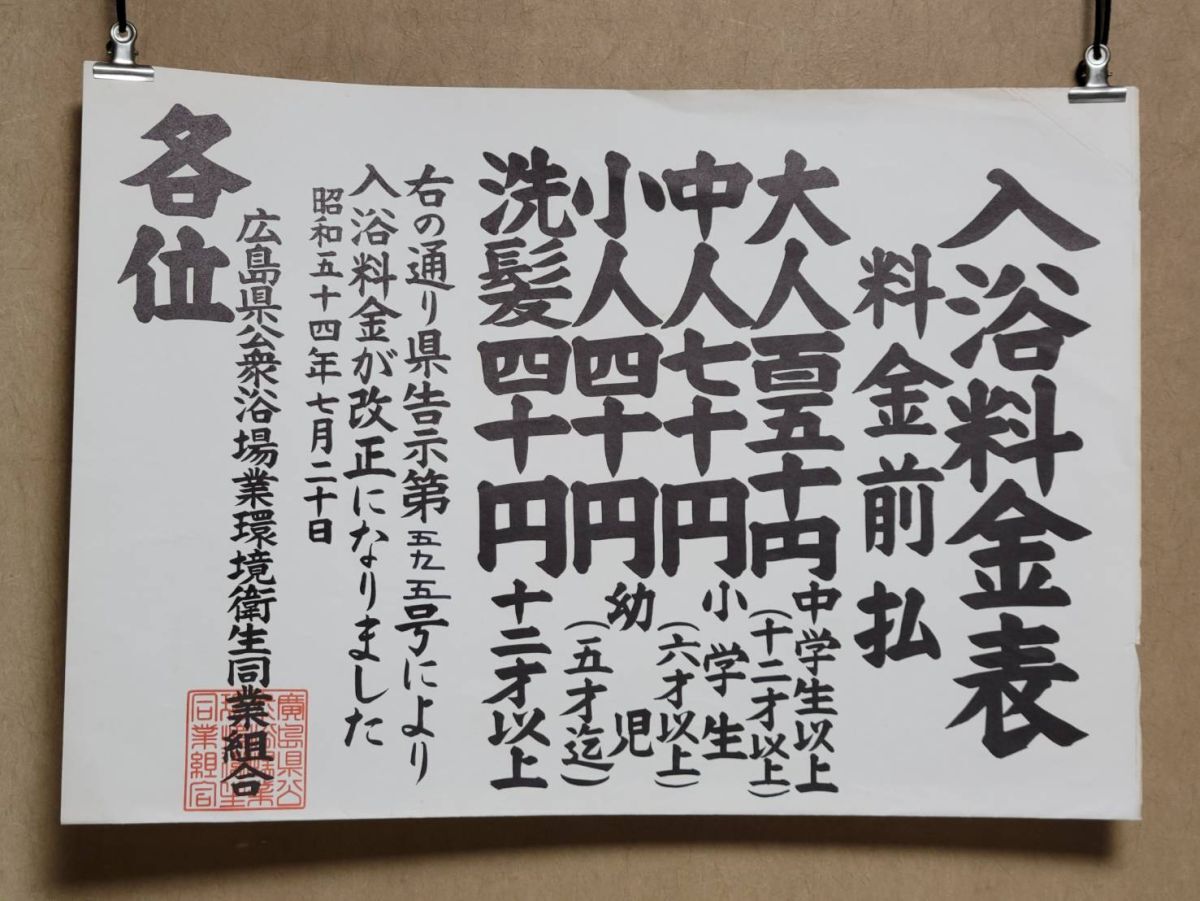 入浴料金表
料金前払
大人百五十円 中学生以上
(十二才以上)
中人七十円 小学生
(六才以上)
小人四十円 幼児
(五才迄)
洗髪四十円 十二才以上
右の通り県告示第五九五号により
入浴料金が改正になりました
昭和五十四年七月二十日
広島県公衆浴場業環境衛生同業組合
各位
廣島県公
同業組合